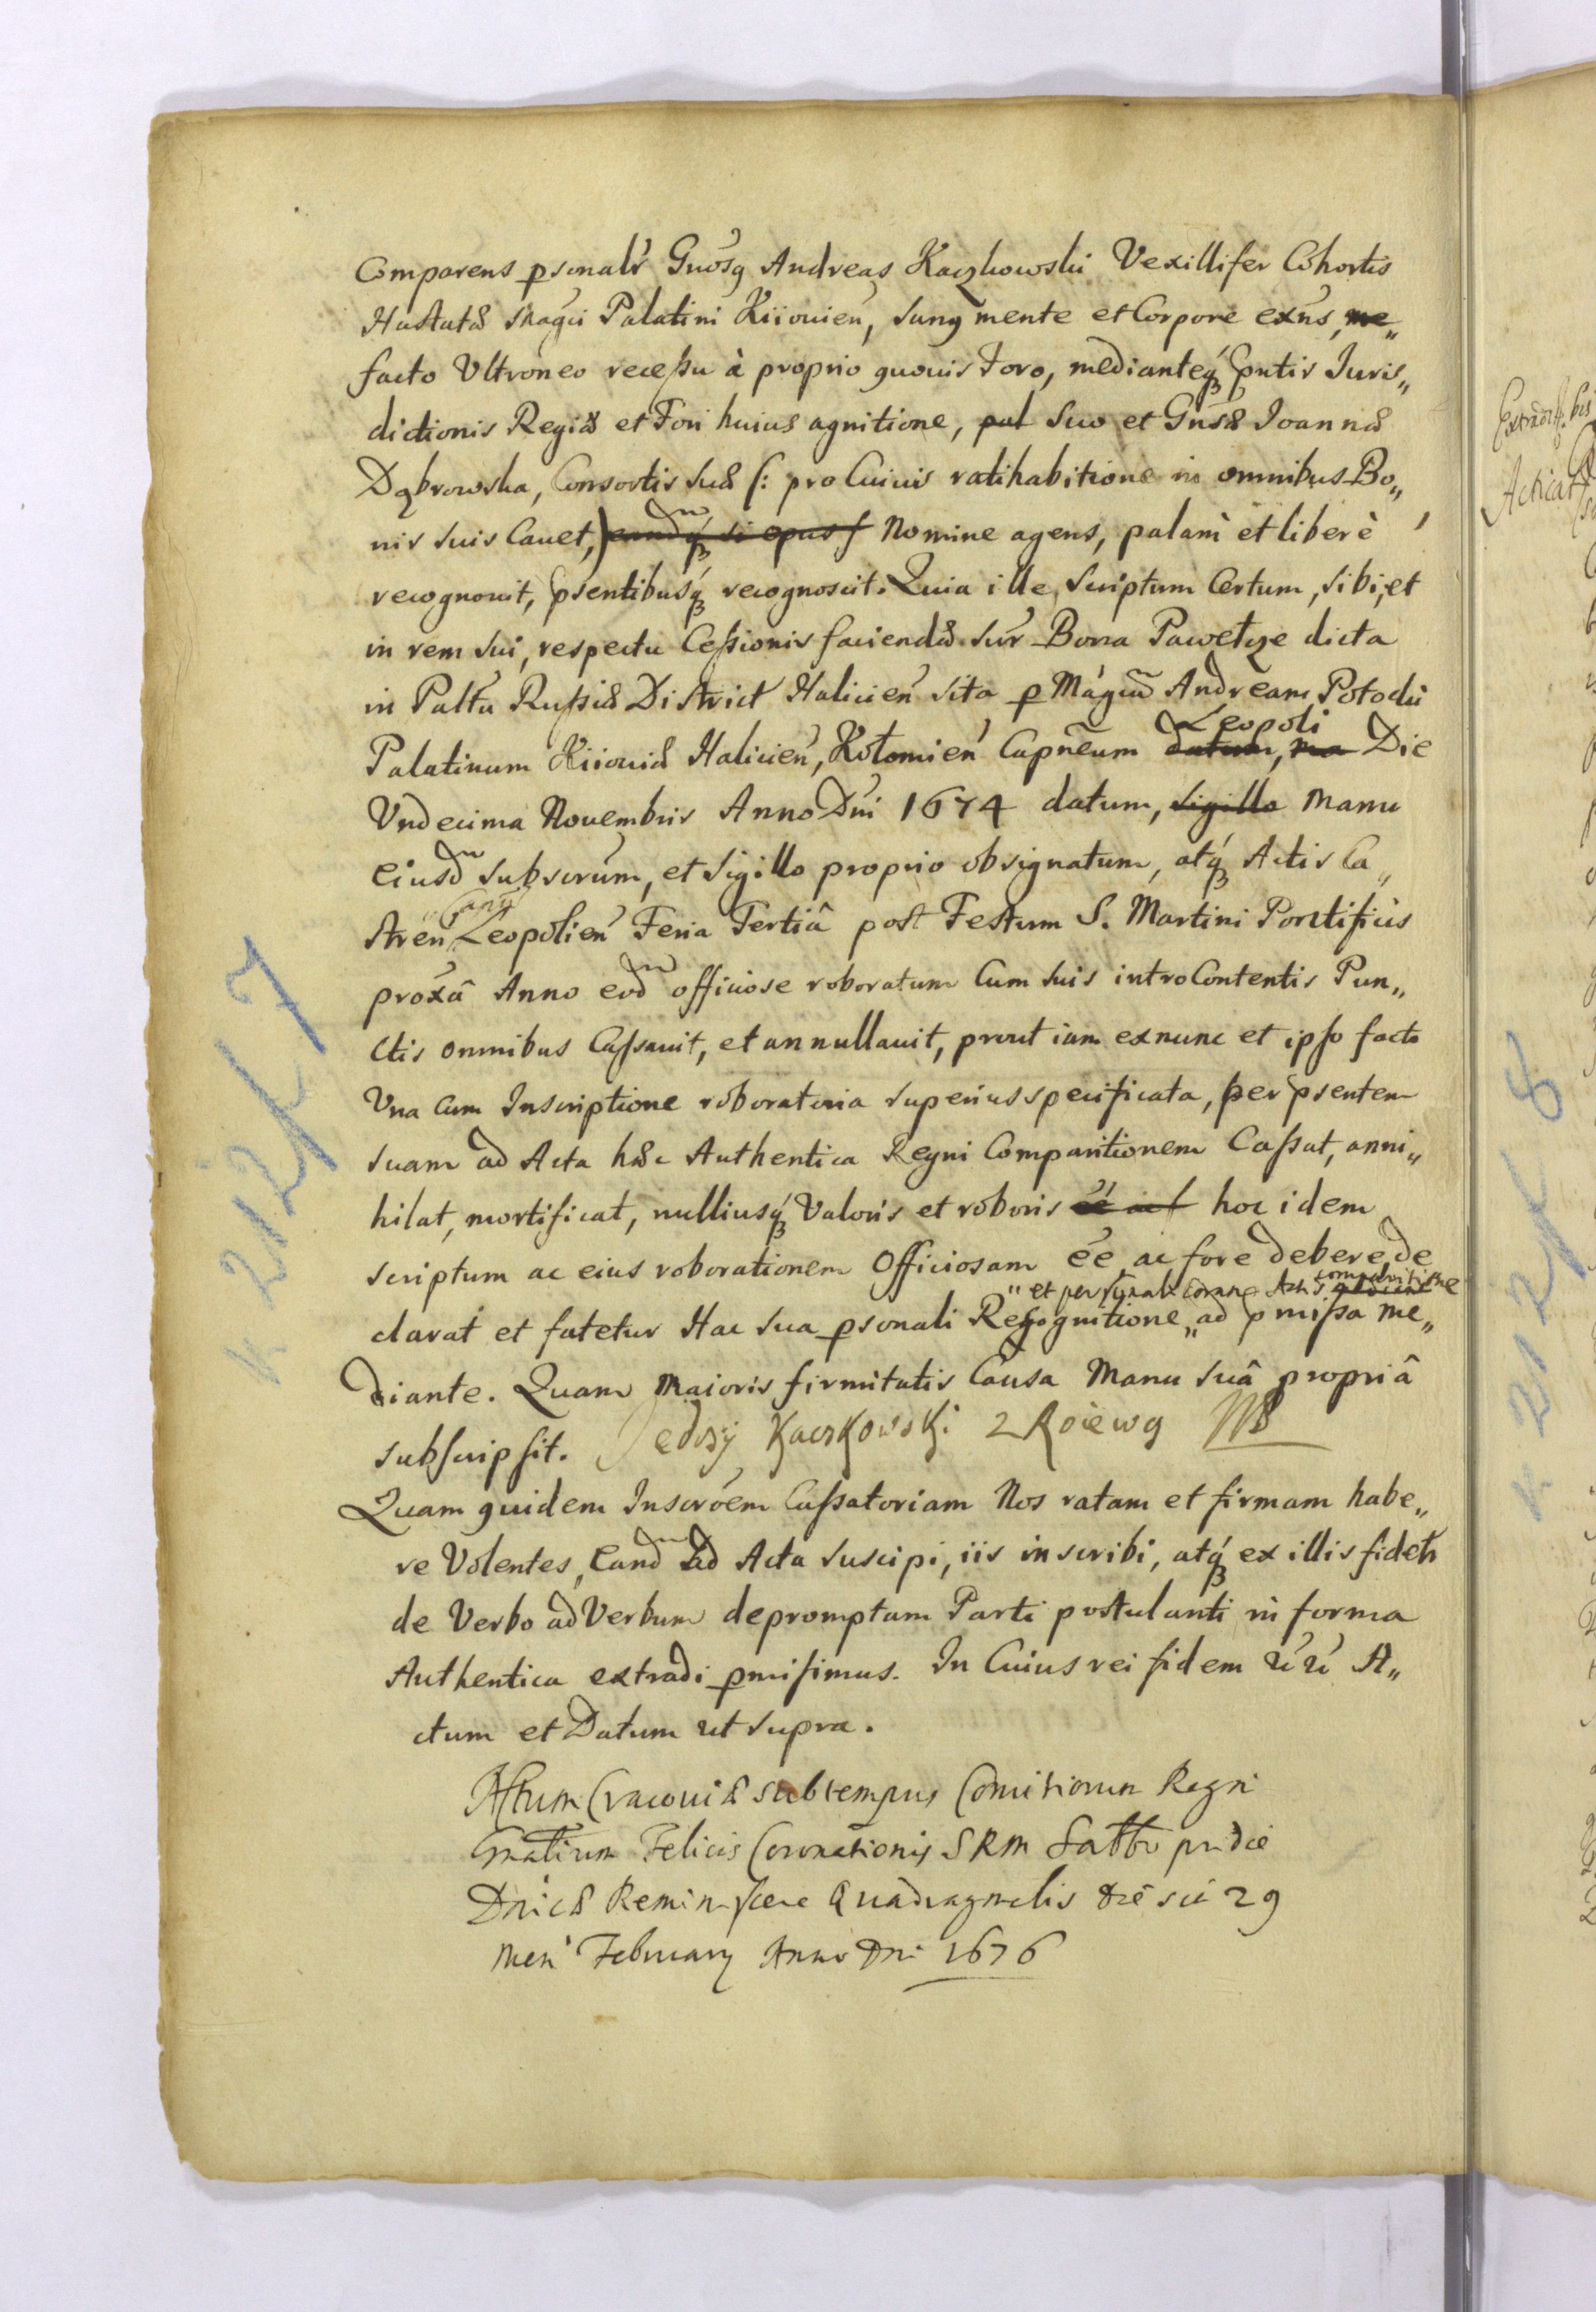 Comparens psonalr Gnosq Andreas Kaczkowski Vexillifer Cohortis
Hastatæ Magci Palatini Kiiouien, sanq mente et Corpore exns, me„
facto Vltroneo recessu à proprio quouis Foro, medianteq; pntis Iuris„
dictionis Regiæ et Fori huius agnitione, pal suo et Gnsæ Ioannæ
Dąbrowska, Consortis suæ /: pro Cuius ratihabitione in omnibus Bo„
nis suis Cauet,) eandq; si opus / Nomine agens, palam et liberè
recognouit, psentibusq; recognoscit. Quia ille, scriptum Certum, sibi, et
in rem sui, respectu Cessionis faciendæ sur Bona Pawełcze dicta
in Paltu Russiæ District Halicien sita p Magcu Andream Potocki
Leopoli
Palatinum Kiiouiæ Halicien, Kołomien Capneum datum, ma Die
Vndecima Nouembris Anno Dni 1674 datum, sigillo manu
eiusd subscrum, et sigillo proprio obsignatum, atq; Actis Ca„
Cang
stren Leopolien Feria Tertiâ post Festum S. Martini Pontificis
proxâ Anno eod officiose roboratum Cum suis introContentis Pun„
ctis omnibus Cassauit, et annullauit, prout iam exnunc et ipso facto
Vna cum Inscriptione roboratoria superius specificata, per psentem
suam ad Acta hæc Authentica Regni Comparitionem Cassat, anni„
hilat, mortificat, nulliusq; Valoris et roboris ee ac f hoc idem
scriptum ac eius roborationem Officiosam ee, ac fore debere, de
„et personali coram Actis comparitione
clarat et fatetur Hac sua psonali Recognitione „ad pmissa me„
diante. Quam Maioris firmitatis Causa Manu suâ propriâ
subscripsit. Jedrzy Kaczkowski
Quam quidem Inscroem Cassatoriam Nos ratam et firmam habe„
re Volentes, Eand ad Acta suscipi, iis inscribi, atq; ex illis fidetr
de Verbo ad Verbum depromptam Parti postulanti in forma
Authentica extradi pmisimus. In Cuius rei fidem A„
ctum et Datum ut supra.
Actum Cracouiæ sub tempus Comitiorum Regni
Gnalium Felicis Coronationis SRM Sabbo pridie
Dnicæ Reminiscere Quadragmalis die sci 29
men February Anno Dni 1676
k 212 k 7
k 212 k 8
Acticat